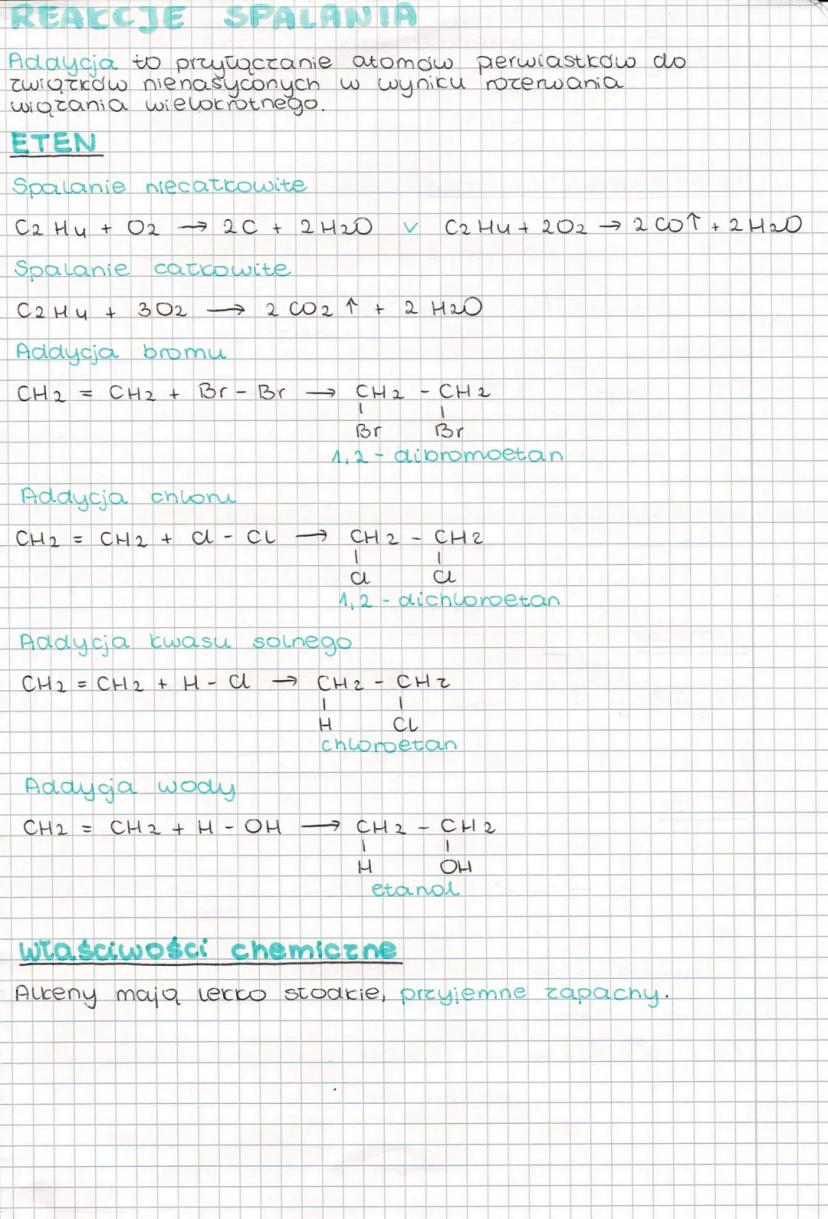 REAKCJE SPALANIA
Addycja to przyłączanie atomów perwiastków do
związków nienasyconych w wyniku rozerwania
wiązania wielokrotnego.
ETEN
Spalanie niecałkowite
C2H4 + O2 → 2C + 2H2O v C2H4 + 2O2 → 2CO↑ + 2H2O
Spalanie całkowite
C2H4 + 3O2 → 2CO2↑ + 2H2O
Addycja bromu
CH2 = CH2 + Br - Br → CH2 - CH2
Br Br
1,2 - dibromoetan
Addycja chloru
CH2 = CH2 + Cl - Cl → CH2 - CH2
Cl Cl
1,2 - dichloroetan
Addycja kwasu solnego
CH2 = CH2 + H - Cl → CH2 - CH2
H Cl
chloroetan
Addycja wody
CH2 = CH2 + H - OH → CH2 - CH2
H OH
etanol
Właściwości chemiczne
Alkeny mają lekko słodkie, przyjemne zapachy.